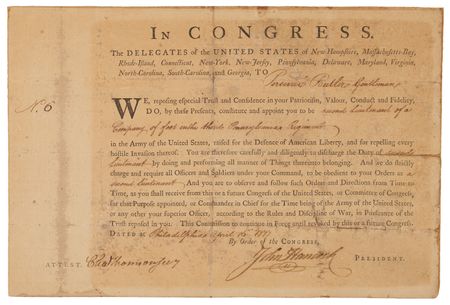 IN CONGRESS.
The DELEGATES of the UNITED STATES of New-Hampshire, Massachusetts-Bay,
Rhode-Island, Connecticut, New-York, New-Jersey, Pennsylvania, Delaware, Maryland, Virginia,
North-Carolina, South-Carolina, and Georgia, TO
Percival Butler Gentleman
No. 6
WE, reposing especial Trust and Confidence in your Patriotism, Valour, Conduct and Fidelity,
DO, by these Presents, constitute and appoint you to be second Lieutenant of a
Company of foot in the third Pennsylvania Regiment
in the Army of the United States, raised for the Defence of American Liberty, and for repelling every
hostile Invasion thereof. You are therefore carefully and diligently to discharge the Duty of second
Lieutenant by doing and performing all manner of Things thereunto belonging. And we do strictly
charge and require all Officers and Soldiers under your Command, to be obedient to your Orders as a
second Lieutenant. And you are to observe and follow such Orders and Directions from Time to
Time, as you shall receive from this or a future Congress of the United States, or Committee of Congress,
for that Purpose appointed, or Commander in Chief for the Time being of the Army of the United States,
or any other your superior Officer, according to the Rules and Discipline of War, in Pursuance of the
Trust reposed in you. This Commission to continue in Force until revoked by this or a future Congress.
DATED at Philadelphia April
By Order of the CONGRESS,
ATTEST. Cha Thomson Secy John Hancock PRESIDENT.